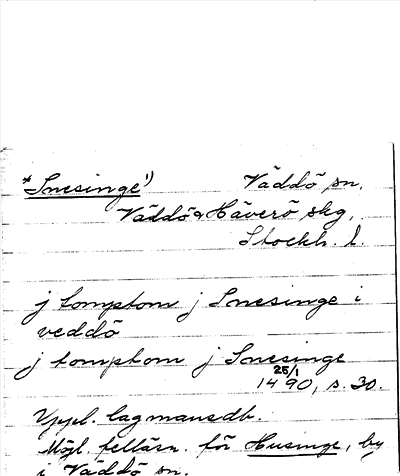 *Snesinge¹) Väddö sn,
Väddö & Häverö skg,
Stockh. l.
j tomptom j Snesinge i
veddö
j tomptom j Snesinge
25/1
1490, s. 30.
Uppl. lagmansdb.
Möjl. felläsn. för Husinge, by
i Väddö sn.